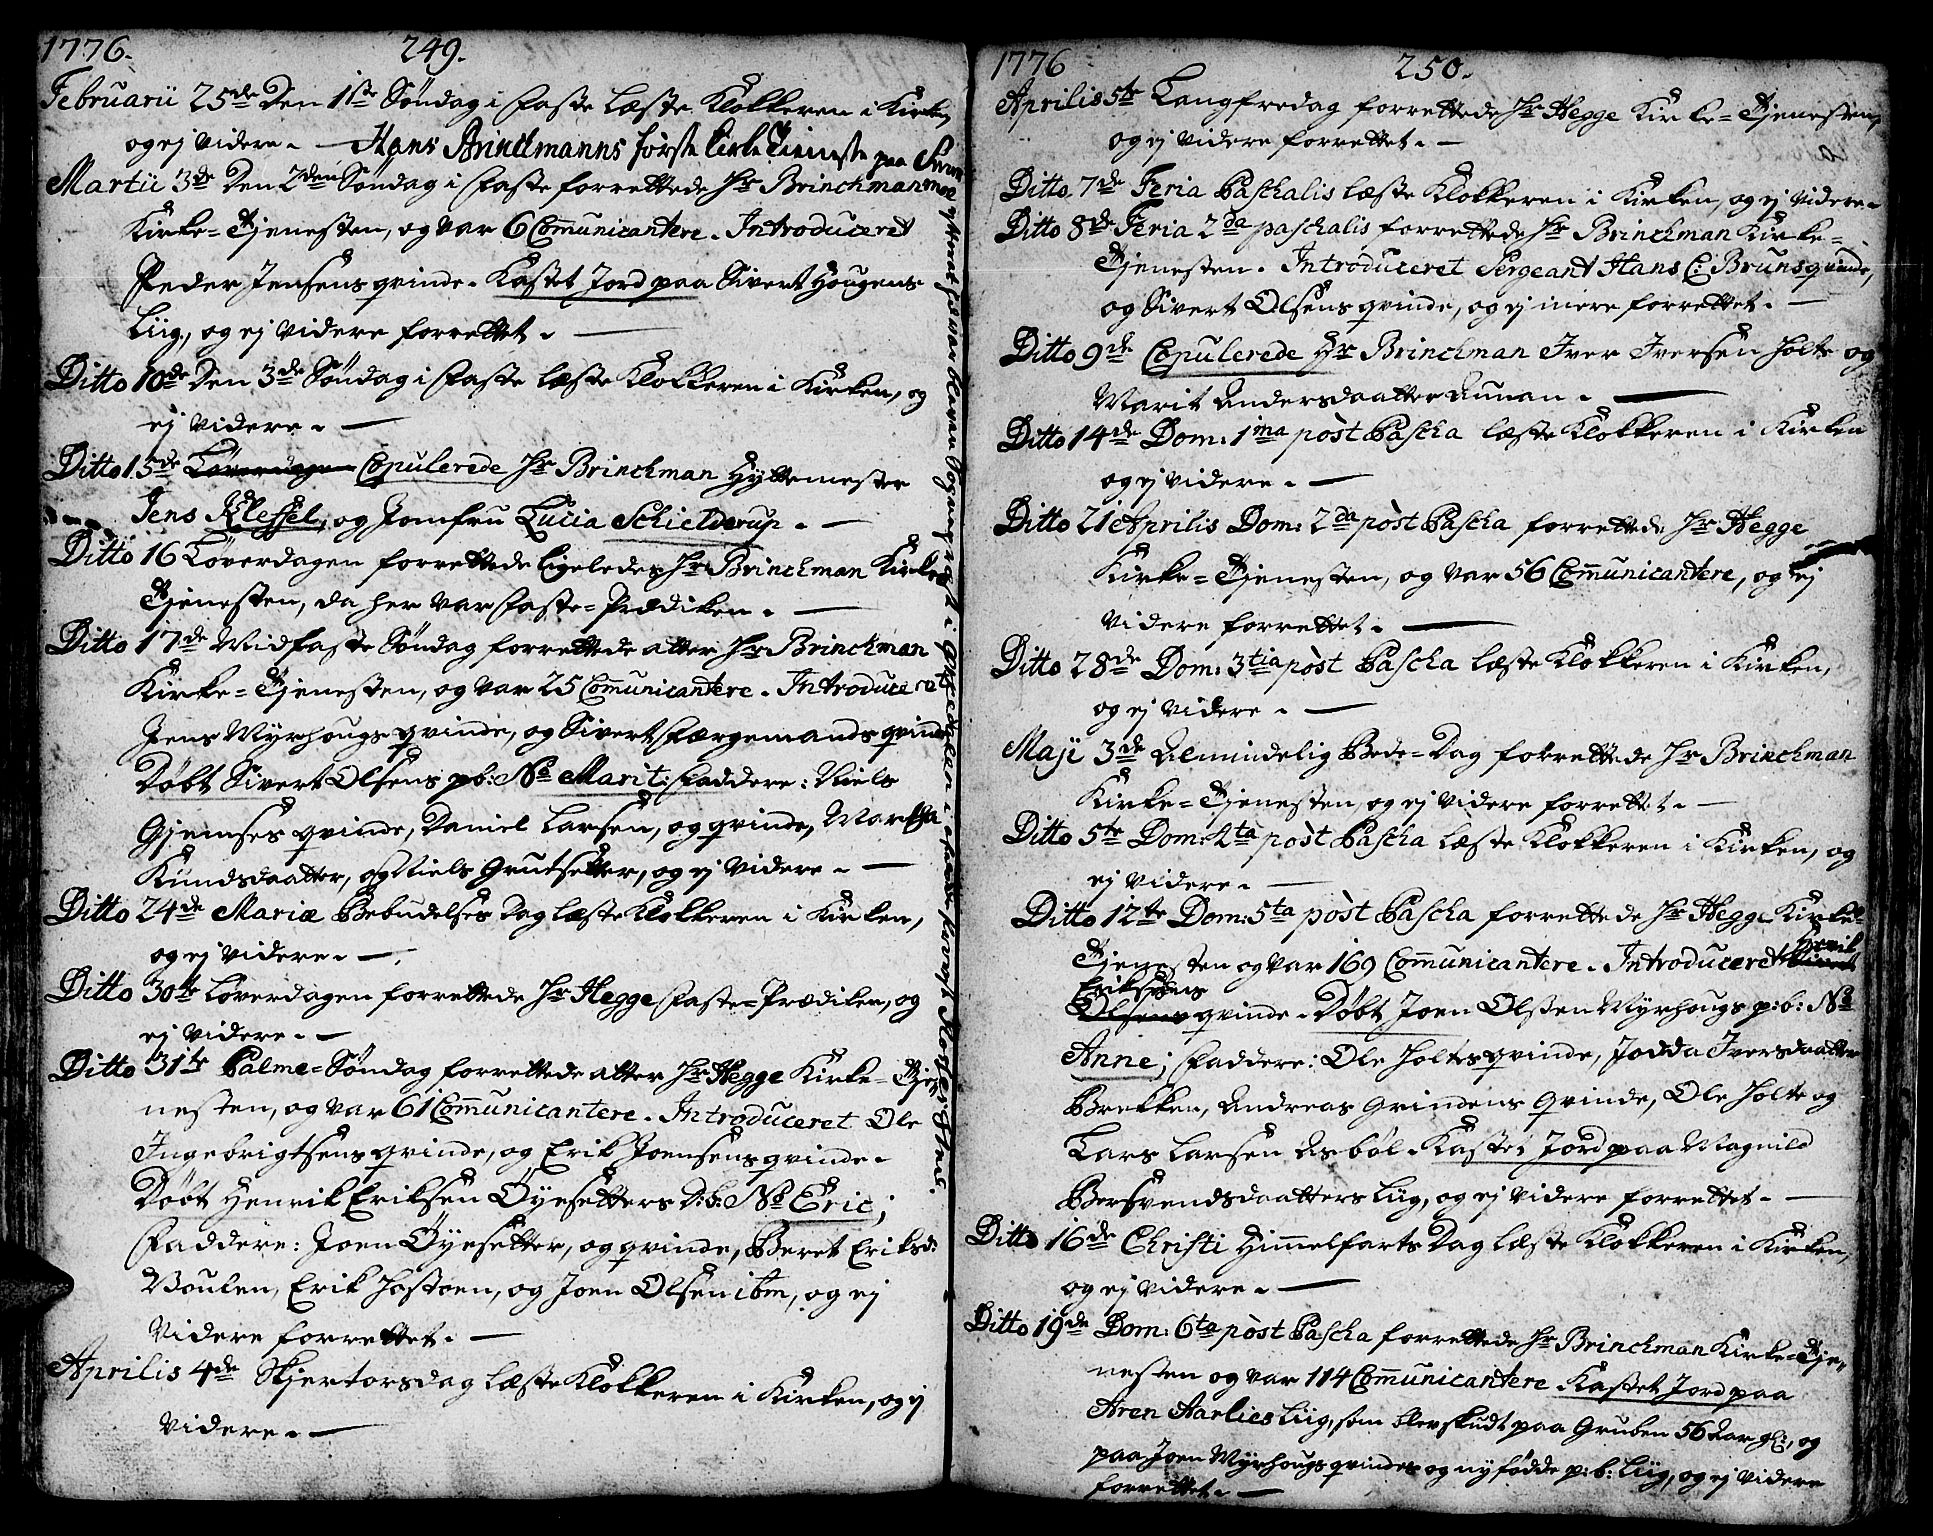 1776. 249.
Februarii 25de Den 1ste Søndag i Faste læste Klokkeren i Kirken,
og ej videre. — Hans Brinckmanns første Kirke Tieneste paa
Martii 3de Den 2den Søndag i Faste forrettede Hr Brinchman
Kirke-Tjenesten, og var 6 Communicantere. Introduceret
Peder Jensens qvinde. Kastet Jord paa Sivert Hougens
Liig, og ej videre forrettet. —
Ditto 10de Den 3de Søndag i Faste læste Klokkeren i Kirken, og
ej videre. —
Ditto 15de Løverdagen Copulerede Hr Brinchman Hyttemester
Jens Klessel, og Jomfru Lucia Schielderup. —
Ditto 16 Løverdagen forrettede ligeledes Hr Brinchman Kirke
Tjenesten, da her var Faste-Prædiken. —
Ditto 17de Midfaste Søndag forrettede atter Hr Brinchman
Kirke-Tjenesten, og var 25 Communicantere. Introduceret
Jens Myrhougs qvinde, og Sivert Færgemands qvinde
Døbt Sivert Olsens pb: No Marit: Faddere: Niels
Gjemses qvinde, Daniel Larsen, og qvinde, Martha
Knudsdaatter, og Niels Grutsetter, og ej videre. —
Ditto 24de Mariæ Bebudelses Dag læste Klokkeren i Kirken,
og ej videre. —
Ditto 30te Løverdagen forrettede Hr Hegge Faste-Prædiken, og
ej videre. —
Ditto 31te Palme-Søndag forrettede atter Hr Hegge Kirke-Tje-
nesten, og var 61 Communicantere. Introduceret Ole
Ingebrigtsens qvinde, og Erik Joensens qvinde.
Døbt Henrik Eriksen Öyesetters D:b: No Eric;
Faddere: Joen Öyesetter, og qvinde, Beret Eriksd:
Voulen, Erik Hostoen, og Joen Olsen ibm, og ej
videre forrettet. —
Aprilis 4de Skjertorsdag læste Klokkeren i Kirken, og ej
videre. —
1776 250.
Aprilis 5te Langfredag forrettede Hr Hegge Kirke-Tjenesten,
og ej videre forrettet. —
Ditto 7de Feria Paschalis læste Klokkeren i Kirken, og ej videre.
Ditto 8de Feria 2da paschalis forrettede Hr Brinchman Kirke-
Tjenesten. Introduceret Sergeant Hans C: Bruns qvinde,
og Sivert Olsens qvinde, og ej mere forrettet. —
Ditto 9de Copulerede Hr Brinchman Iver Iversen Holte og
Marit Andersdaatter Aunan. —
Ditto 14de Dom: 1ma pòst Pascha læste Klokkeren i Kirken
og ej videre. —
Ditto 21 Aprilis Dom: 2da pòst Pascha forrettede Hr Hegge
Kirke-Tjenesten, og var 56 Communicantere, og ej
videre forrettet. —
Ditto 28de Dom: 3tia pòst Pascha læste Klokkeren i Kirken,
og ej videre. —
Maji 3de Almindelig Bede-Dag forrettede Hr Brinchman
Kirke-Tjenesten og ej videre forrettet. —
Ditto 5te Dom: 4ta pòst Pascha læste Klokkeren i Kirken, og
ej videre. —
Ditto 12te Dom: 5ta pòst Pascha forrettede Hr Hegge Kirke-
Tjenesten og var 169 Communicantere. Introduceret
Eriksens
Olsens qvinde. Døbt Joen Olsten Myrhougs p:b: No
Anne; Faddere: Ole Holtes qvinde, Jodda Iversdaatter
Brekken, Andreas Grindens qvinde, Ole Holte og
Lars Larsen Asbøl. Kastet Jord paa Magnild
Bersvendsdaatters Liig, og ej videre forrettet. —
Ditto 16de Christi Himmelfarts Dag læste Klokkeren i Kirken,
og ej videre. —
Ditto 19de Dom: 6ta pòst Pascha forrettede Hr Brinchman Kirke-Tje-
nesten og var 114 Communicantere Kastet Jord paa
Aren Aarlies Liig, som blev skudt paa Gruben 56 Aar gl:, og
paa Joen Myrhougs qvindes og nyfødde p:b: Liig, og ej videre
forrettet. —